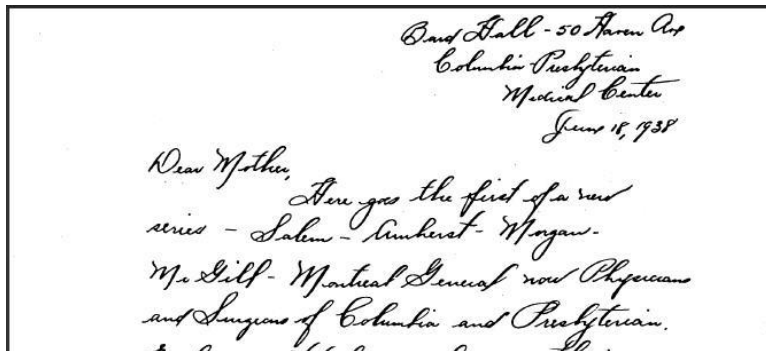 Bard Hall - 50 Haven Ave
Columbia Presbyterian
Medical Center
June 18, 1938
Dear Mother,
Here goes the first of a new
series - Salem - Amherst - Morgan -
McGill - Montreal General now Physicians
and Surgeons of Columbia and Presbyterian.